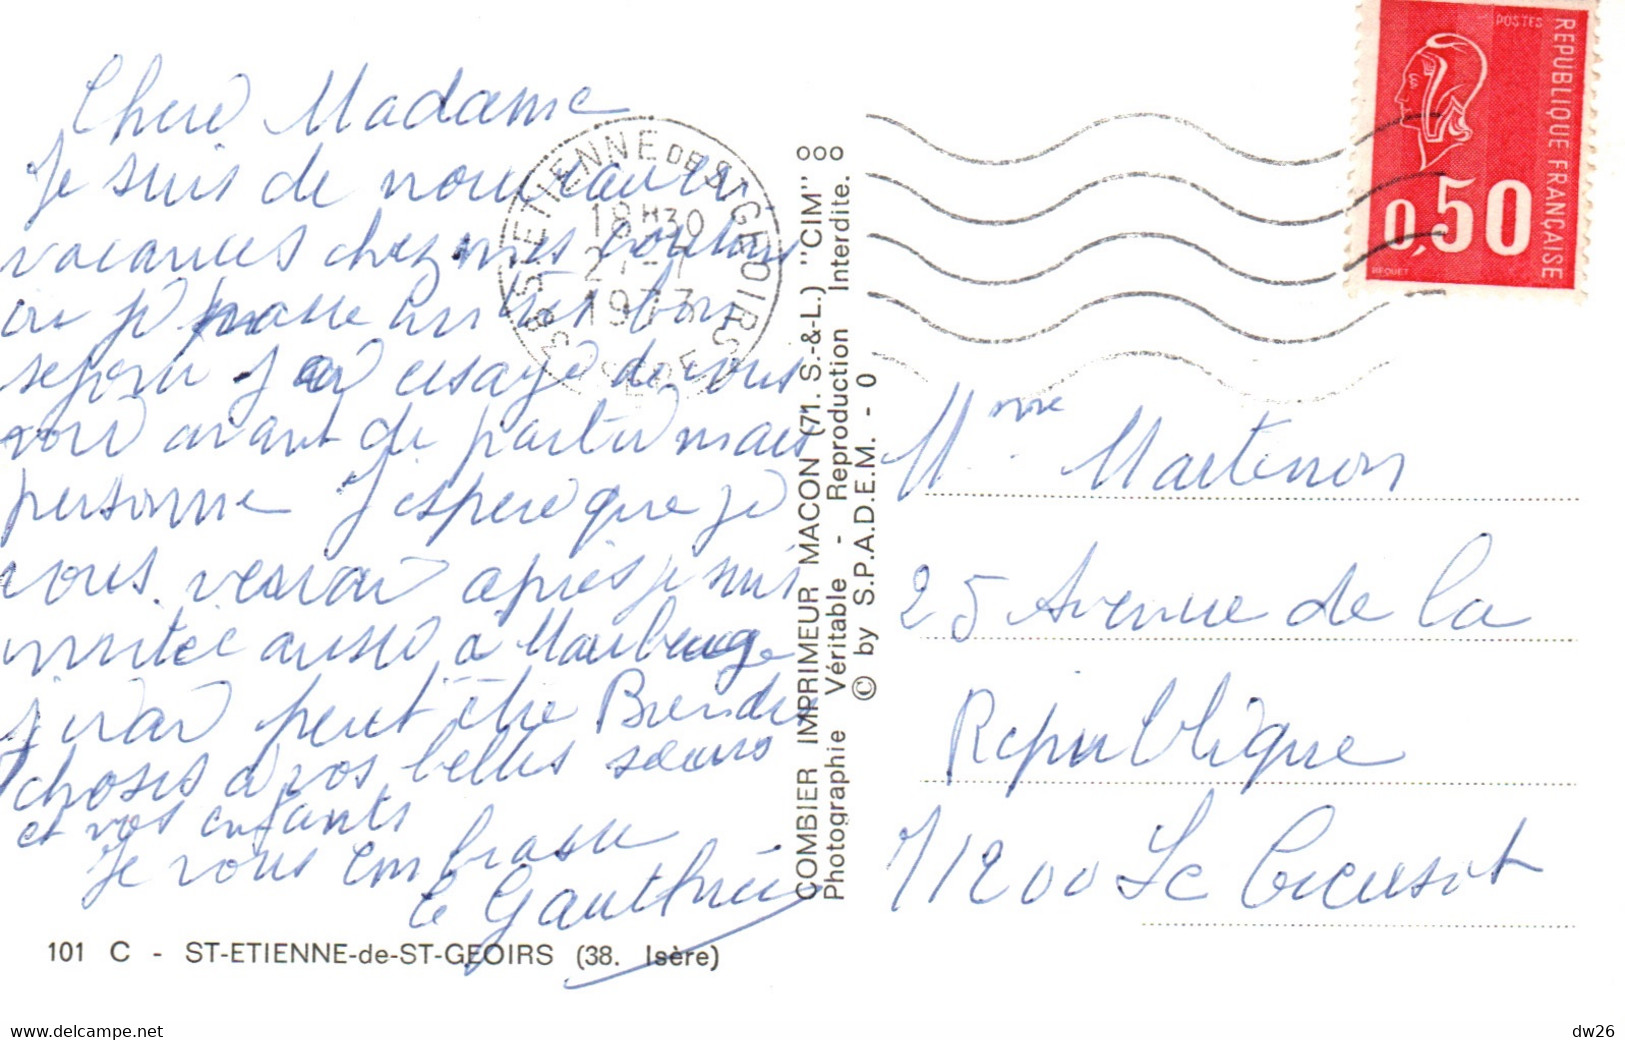 Chere Madame
Je suis de nouveau en
vacances chez mes cousins
ou je passe un tres bon
sejour J ai essayé de vous
voir avant de partir mais
personne J espere que je
vous verrai apres je suis
invitée aussi à Maubeuge
j irai peut être
choses à vos belles sœurs
et vos enfants
Je vous embrasse
101 C - ST-ETIENNE-de-ST-GEOIRS (38. Isère)
38 ST-ETIENNE DE ST-GEOIRS
18H30
1973
ISERE
COMBIER IMPRIMEUR MACON (71. S.-&-L.) "CIM"
Photographie Véritable - Reproduction Interdite.
© by S.P.A.D.E.M. - 0
POSTES
REPUBLIQUE FRANÇAISE
0,50
BEQUET
Mme Martenon
25 Avenue de la
République
71200 Le Creusot
www.delcampe.net
dw26